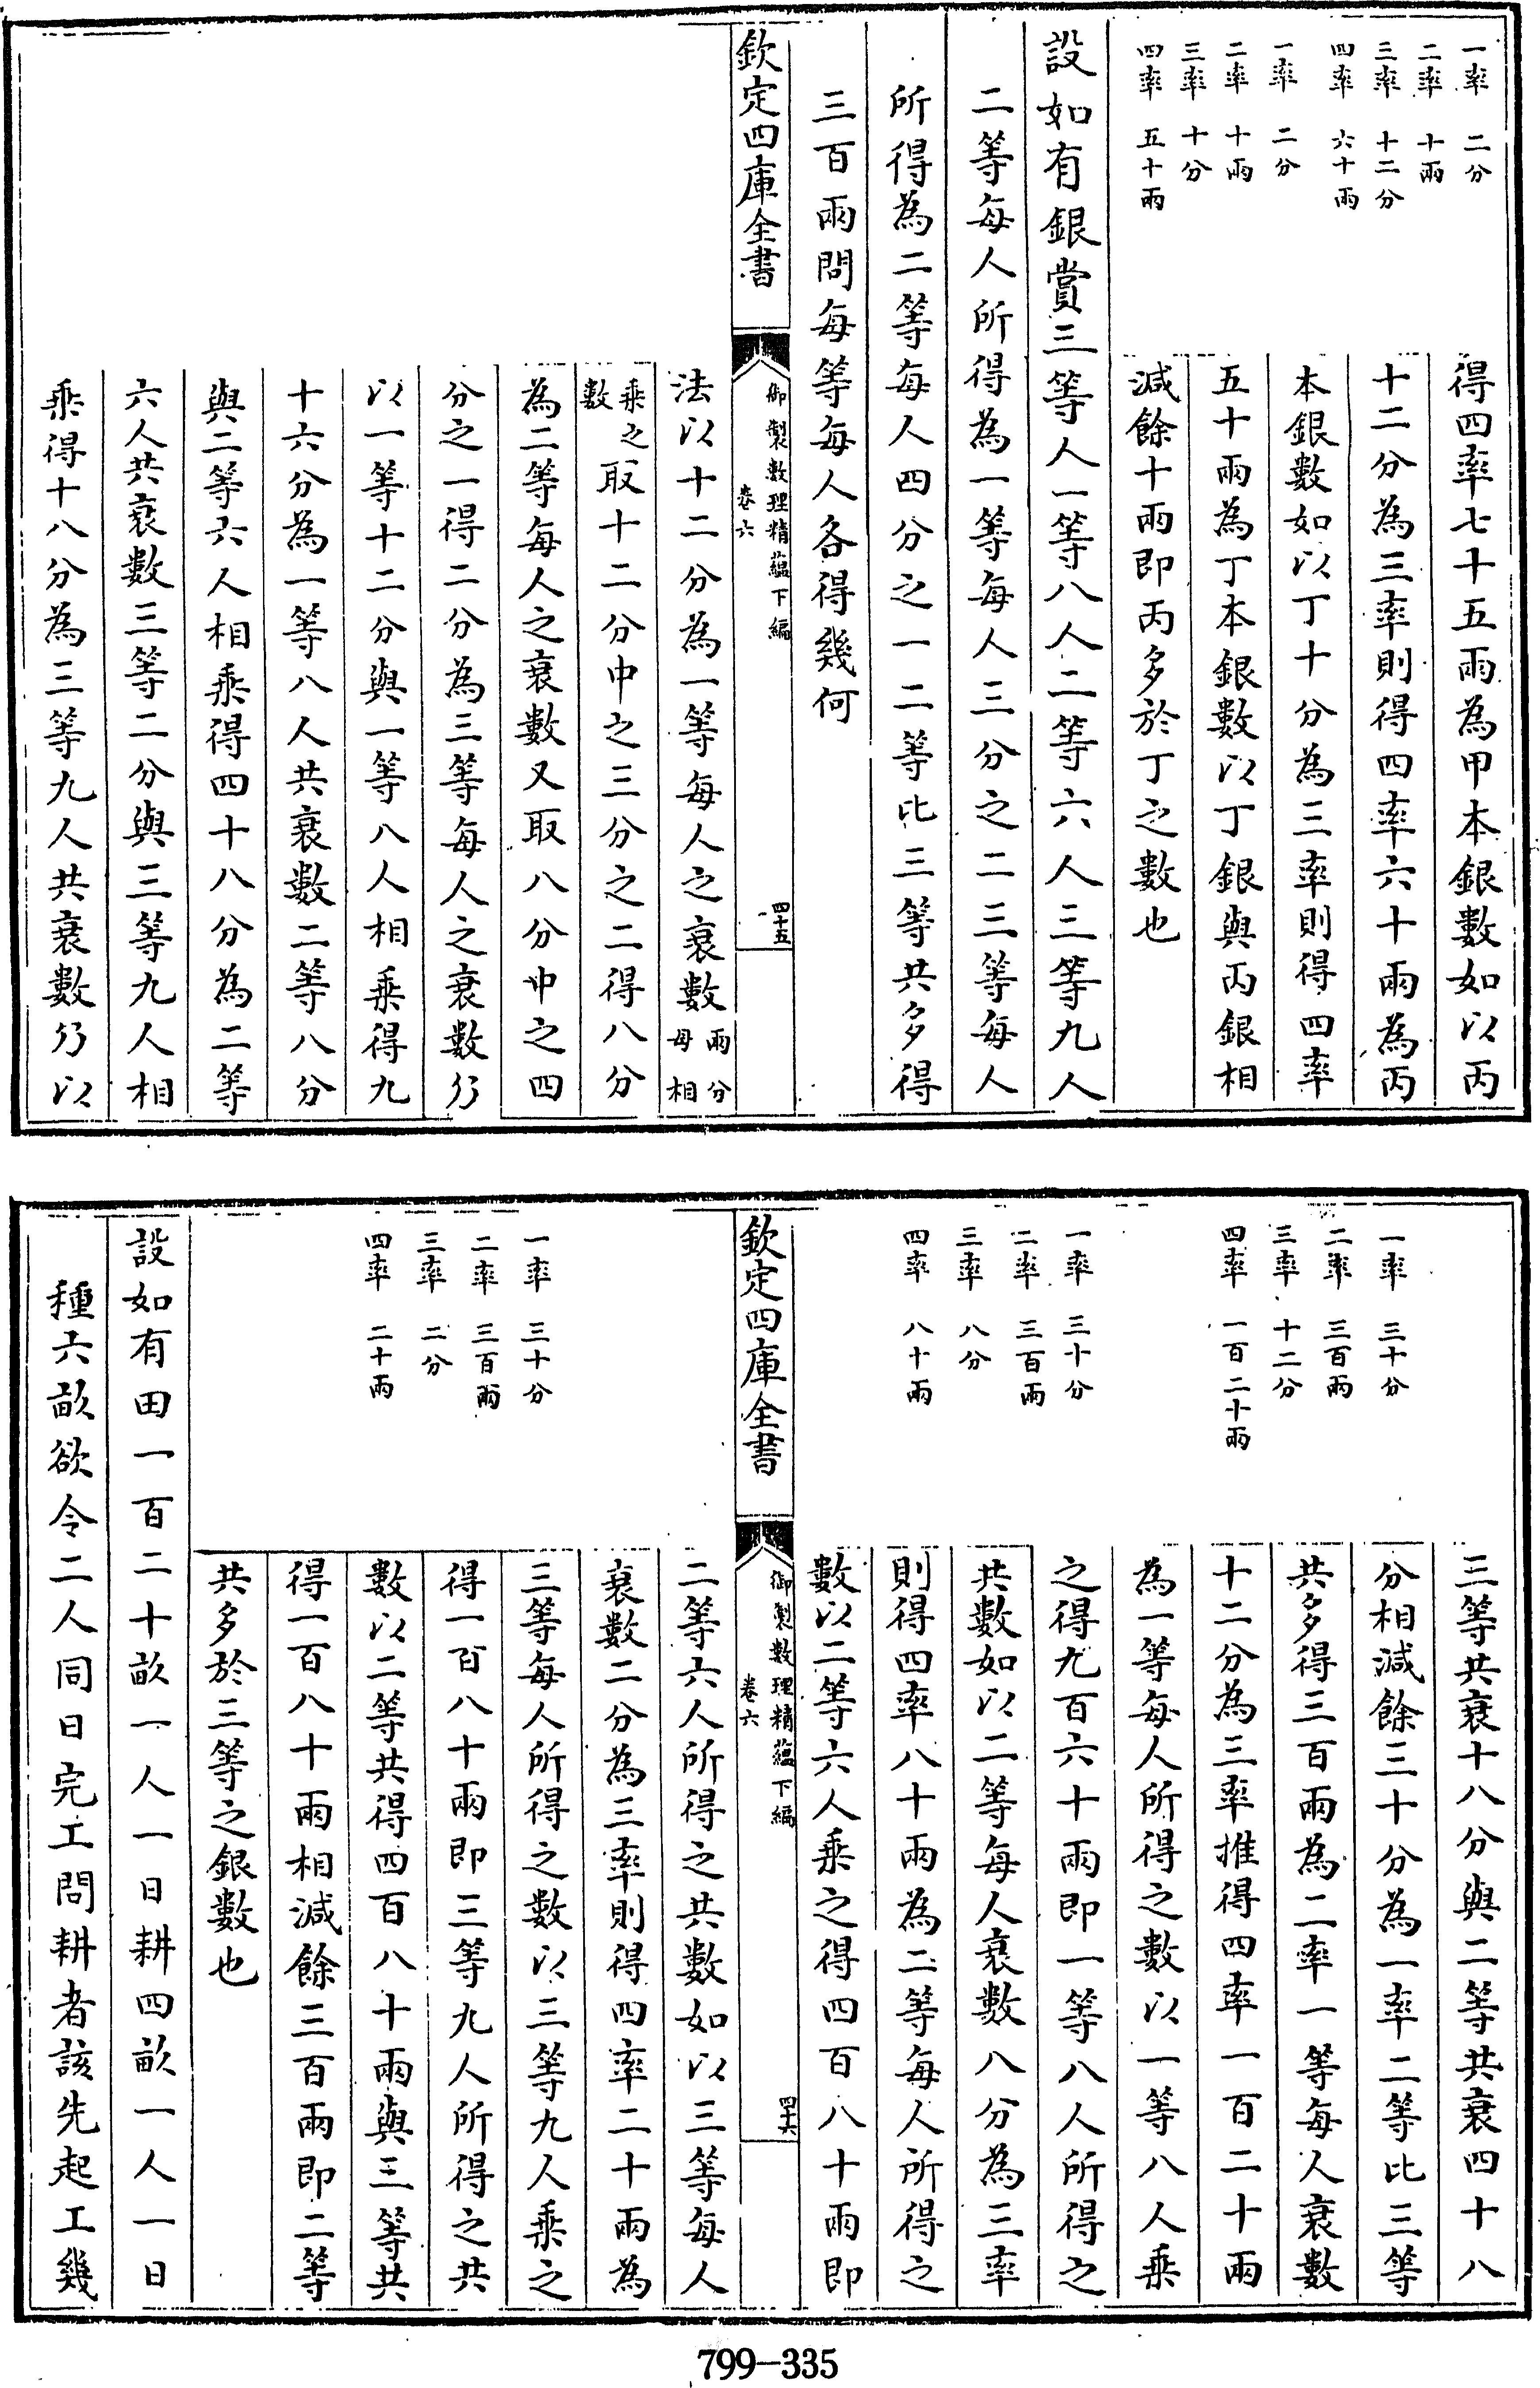 一率　二分
二率　十兩
三率　十二分
四率　六十兩
一率　二分
二率　十兩
三率　十分
四率　五十兩
得四率七十五兩為甲本銀數如以丙
十二分為三率則得四率六十兩為丙
本銀數如以丁十分為三率則得四率
五十兩為丁本銀數以丁銀與丙銀相
減餘十兩即丙多於丁之數也
設如有銀賞三等人一等八人二等六人三等九人
二等每人所得為一等每人三分之二三等每人
所得為二等每人四分之一二等比三等共多得
三百兩問每等每人各得幾何
欽定四庫全書
御製數理精蘊下編
卷六
四十五
法以十二分為一等每人之衰數兩分母相
乘之數取十二分中之三分之二得八分
為二等每人之衰數又取八分中之四
分之一得二分為三等每人之衰數乃
以一等十二分與一等八人相乘得九
十六分為一等八人共衰數二等八分
與二等六人相乘得四十八分為二等
六人共衰數三等二分與三等九人相
乘得十八分為三等九人共衰數乃以
一率　三十分
二率　三百兩
三率　十二分
四率　一百二十兩
一率　三十分
二率　三百兩
三率　八分
四率　八十兩
三等共衰十八分與二等共衰四十八
分相減餘三十分為一率二等比三等
共多得三百兩為二率一等每人衰數
十二分為三率推得四率一百二十兩
為一等每人所得之數以一等八人乘
之得九百六十兩即一等八人所得之
共數如以二等每人衰數八分為三率
則得四率八十兩為二等每人所得之
數以二等六人乘之得四百八十兩即
欽定四庫全書
御製數理精蘊下編
卷六
四十六
一率　三十分
二率　三百兩
三率　二分
四率　二十兩
二等六人所得之共數如以三等每人
衰數二分為三率則得四率二十兩為
三等每人所得之數以三等九人乘之
得一百八十兩即三等九人所得之共
數以二等共得四百八十兩與三等共
得一百八十兩相減餘三百兩即二等
共多於三等之銀數也
設如有田一百二十畝一人一日耕四畝一人一日
種六畝欲令二人同日完工問耕者該先起工幾
799-335